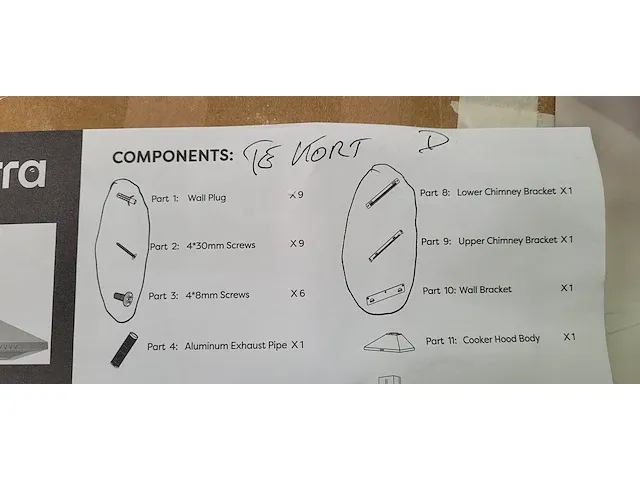 rra
COMPONENTS: TE KORT D
Part 1: Wall Plug X 9
Part 2: 4*30mm Screws X 9
Part 3: 4*8mm Screws X 6
Part 4: Aluminum Exhaust Pipe X 1
Part 8: Lower Chimney Bracket X 1
Part 9: Upper Chimney Bracket X 1
Part 10: Wall Bracket X 1
Part 11: Cooker Hood Body X 1